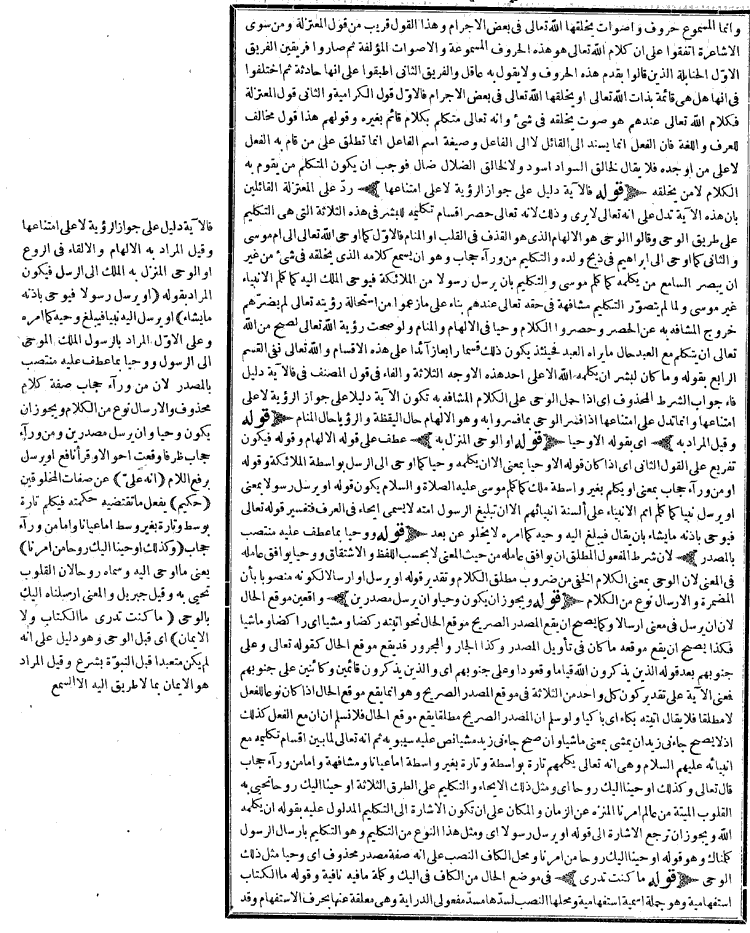 وانما المسموع حروف واصوات يخلقها الله تعالى فى بعض الاجرام وهذا القول قريب من قول المعتزلة ومن سوى
الاشاعرة اتفقوا على ان كلام الله تعالى هو هذه الحروف المسموعة والاصوات المؤلفة ثم صاروا فريقين الفريق
الاول الحنابلة الذين قالوا بقدم هذه الحروف ولا يقول به عاقل والفريق الثانى اطبقوا على انها حادثة ثم اختلفوا
فى انها هل هى قائمة بذات الله تعالى او يخلقها الله تعالى فى بعض الاجرام فالاول قول الكرامية والثانى قول المعتزلة
فكلام الله تعالى عندهم هو صوت يخلقه فى شئ وانه تعالى متكلم بكلام قائم بغيره وقولهم هذا قول مخالف
للعرف واللغة فان الفعل انما يسند الى القائل لا الى الفاعل وصيغة اسم الفاعل انما تطلق على من قام به الفعل
لا على من اوجده فلا يقال لخالق السواد اسود ولا لخالق الضلال ضال فوجب ان يكون المتكلم من يقوم به
الكلام لا من يخلقه قوله فالآية دليل على جواز الرؤية لا على امتناعها ردّ على المعتزلة القائلين
بان هذه الآية تدل على انه تعالى لا يرى وذلك لانه تعالى حصر اقسام تكليمه للبشر فى هذه الثلاثة التى هى التكليم
على طريق الوحى وقالوا الوحى هو الالهام الذى هو القذف فى القلب او المنام فالاول كما اوحى الله تعالى الى ام موسى
والثانى كما اوحى الى ابراهيم فى ذبح ولده والتكليم من ورآء حجاب وهو ان يسمع كلامه الذى يخلقه فى شئ من غير
ان يبصر السامع من يكلمه كما كلم موسى والتكليم بان يرسل رسولا من الملائكة فيوحى الملك اليه كما كلم الانبياء
غير موسى ولما لم يتصور التكليم مشافهة فى حقه تعالى عندهم بناء على ما زعموا من استحالة رؤيته تعالى لم يضرّهم
خروج المشافه به عن الحصر وحصروا الكلام وحيا فى الالهام والمنام ولو صحت رؤية الله تعالى لصح من الله
تعالى ان يتكلم مع العبد حال ما يراه العبد فحينئذ يكون ذلك قسما رابعا زآئدا على هذه الاقسام والله تعالى نفى القسم
الرابع بقوله وما كان لبشر ان يكلمه الله الا على احد هذه الاوجه الثلاثة والفاء فى قول المصنف فالآية دليل
فاء جواب الشرط المحذوف اى اذا حمل الوحى على الكلام المشافه به تكون الآية دليلا على جواز الرؤية لا على
امتناعها وانما تدل على امتناعها اذا فسر الوحى بما فسروا به وهو الالهام حال اليقظة والرؤيا حال المنام قوله
وقيل المراد به اى بقوله الا وحيا قوله او الوحى المنزل به عطف على قوله الالهام وقوله فيكون
تفريع على القول الثانى اى اذا كان قوله الا وحيا بمعنى الا ان يكلمه وحيا كما اوحى الى الرسل بواسطة الملائكة وقوله
او من ورآء حجاب بمعنى او يكلم بغير واسطة ملك كما كلم موسى عليه الصلاة والسلام يكون قوله او يرسل رسولا بمعنى
او يرسل نبيا كما كلم امم الانبياء على ألسنة انبيائهم الا ان تبليغ الرسول امته لا يسمى ايحاء فى العرف فتفسير قوله تعالى
فيوحى باذنه ما يشاء بان يقال فيبلغ اليه وحيه كما امره لا يخلو عن بعد قوله ووحيا بما عطف عليه منتصب
بالمصدر لان شرط المفعول المطلق ان يوافق عامله من حيث المعنى لا بحسب اللفظ والاشتقاق ووحيا يوافق عامله
فى المعنى لان الوحى بمعنى الكلام الخفى من ضروب مطلق الكلام وتقدير قوله او يرسل او ارسالا لكونه منصوبا بأن
المضمرة والارسال نوع من الكلام قوله ويجوز ان يكون وحيا وان يرسل مصدرين واقعين موقع الحال
لان ان يرسل فى معنى ارسالا وكما يصح ان يقع المصدر الصريح موقع الحال نحو اتيته ركضا ومشيا اى راكضا وماشيا
فكذا يصح ان يقع موقعه ما كان فى تأويل المصدر وكذا الجار والمجرور قد يقع موقع الحال كقوله تعالى وعلى
جنوبهم بعد قوله الذين يذكرون الله قياما وقعودا وعلى جنوبهم اى والذين يذكرون قائمين وكائنين على جنوبهم
فمعنى الآية على تقدير كون كل واحد من الثلاثة فى موقع المصدر الصريح وهو انما يقع موقع الحال اذا كان نوعا للفعل
لا مطلقا فلا يقال اتيته بكاء اى باكيا ولو سلم ان المصدر الصريح مطلقا يقع موقع الحال فلا نسلم ان ان مع الفعل كذلك
اذ لا يصح جاءنى زيد ان يمشى بمعنى ماشيا وان صح جاءنى زيد مشيا نص عليه سيبويه ثم انه تعالى لما بين اقسام تكليمه مع
انبيائه عليهم السلام وهى انه تعالى يكلمهم تارة بواسطة وتارة بغير واسطة اما عيانا ومشافهة واما من ورآء حجاب
قال تعالى وكذلك اوحينا اليك روحا اى ومثل ذلك الايحاء والتكليم على الطرق الثلاثة اوحينا اليك روحا تحيى به
القلوب الميتة من عالم امرنا المنزه عن الزمان والمكان على ان تكون الاشارة الى التكليم المدلول عليه بقوله ان يكلمه
الله ويجوز ان ترجع الاشارة الى قوله او يرسل رسولا اى ومثل هذا النوع من التكليم وهو التكليم بارسال الرسول
كلمناك وهو قوله اوحينا اليك روحا من امرنا ومحل الكاف النصب على انه صفة مصدر محذوف اى وحيا مثل ذلك
الوحى قوله ما كنت تدرى فى موضع الحال من الكاف فى اليك وكلمة ما فيه نافية وقوله ما الكتاب
استفهامية وهو جملة اسمية استفهامية ومحلها النصب لسدّها مسدّ مفعولى الدراية وهى معلقة عنها بحرف الاستفهام وقد
فالآية دليل على جواز الرؤية لا على امتناعها
وقيل المراد به الالهام والالقاء فى الروع
او الوحى المنزل به الملك الى الرسل فيكون
المراد بقوله (او يرسل رسولا فيوحى باذنه
ما يشاء) او يرسل اليه نبيا فيبلغ وحيه كما امره
وعلى الاول المراد بالرسول الملك الموحى
الى الرسول ووحيا بما عطف عليه منتصب
بالمصدر لان من ورآء حجاب صفة كلام
محذوف والارسال نوع من الكلام ويجوز ان
يكون وحيا وان يرسل مصدرين ومن ورآء
حجاب ظرفا وقعت احوالا وقرأ نافع او يرسل
برفع اللام (انه علىّ) عن صفات المخلوقين
(حكيم) يفعل ما تقتضيه حكمته فيكلم تارة
بوسط وتارة بغير وسط اما عيانا واما من ورآء
حجاب (وكذلك اوحينا اليك روحا من امرنا)
يعنى ما اوحى اليه وسماه روحا لان القلوب
تحيى به وقيل جبريل والمعنى ارسلناه اليك
بالوحى (ما كنت تدرى ما الكتاب ولا
الايمان) اى قبل الوحى وهو دليل على انه
لم يكن متعبدا قبل النبوة بشرع وقيل المراد
هو الايمان بما لا طريق اليه الا السمع